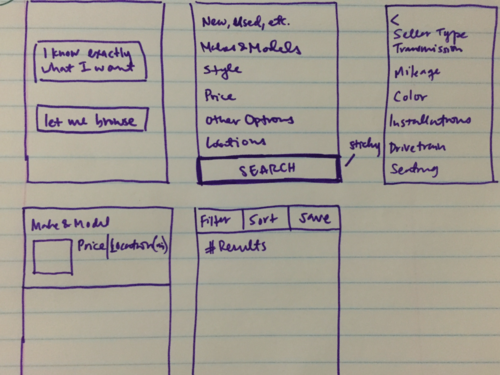 I know exactly
what I want
let me browse
New, Used, etc.
Makes & Models
Style
Price
Other Options
Locations
SEARCH
sticky
<
Seller Type
Transmission
Mileage
Color
Installations
Drivetrain
Seating
Make & Model
Price | Location(s)
Filter | Sort | Save
# Results